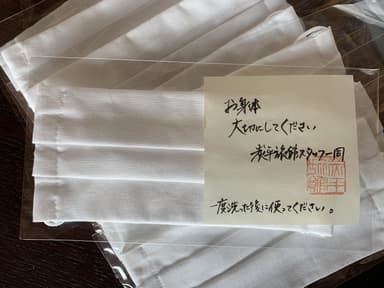 お身体
大切にしてください
旅館スタッフ一同
一度洗った後に使ってください。